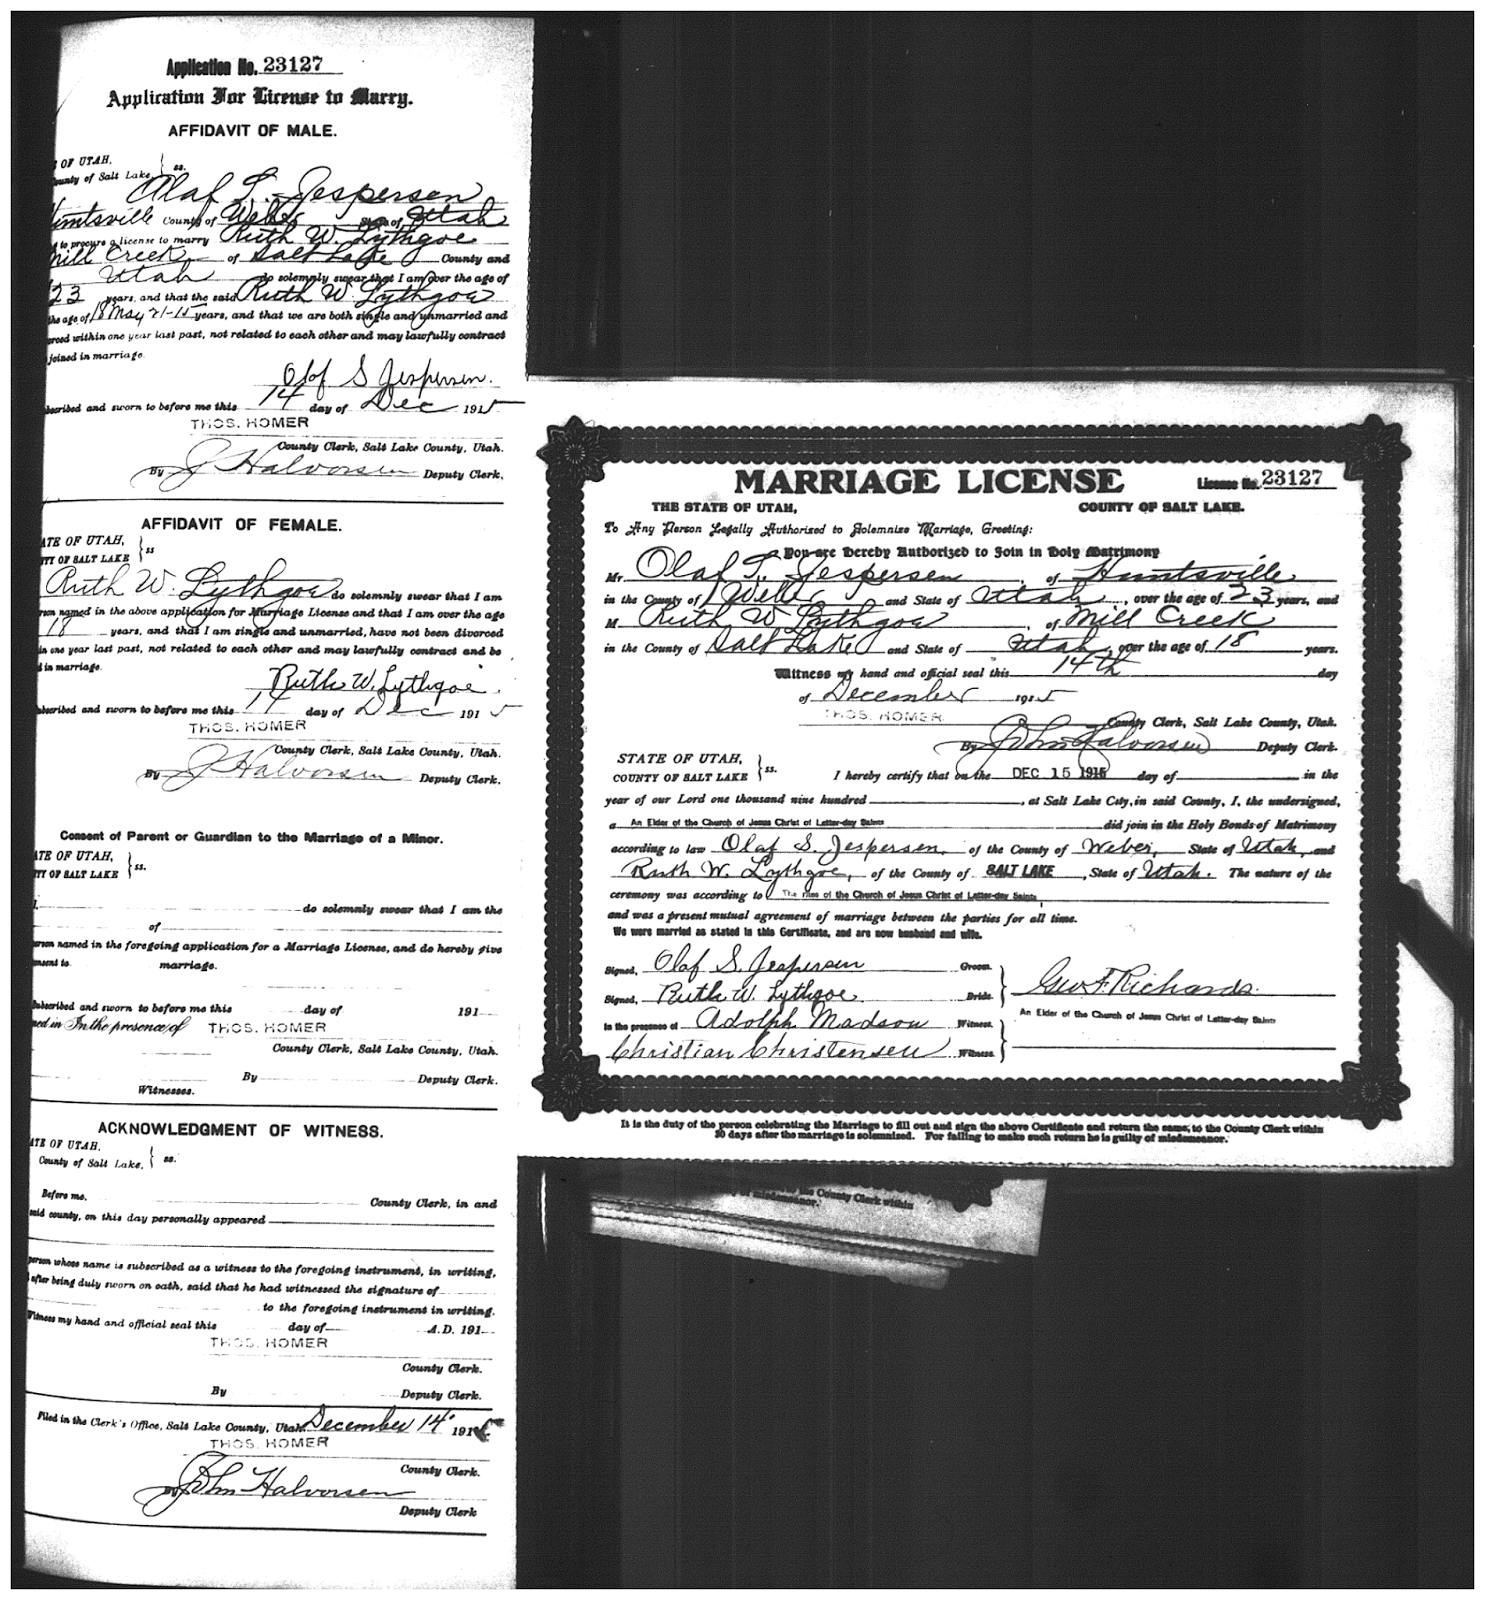 Application No. 23127
Application For License to Marry.
AFFIDAVIT OF MALE.
OF UTAH,
County of Salt Lake, ss.
Olaf S. Jespersen
Huntsville County of Weber State of Utah
to procure a license to marry Ruth W. Lythgoe
Mill Creek of Salt Lake County and
Utah do solemnly swear that I am over the age of
23 years, and that the said Ruth W. Lythgoe
the age of 18 May 21-15 years, and that we are both single and unmarried and
orced within one year last past, not related to each other and may lawfully contract
joined in marriage.
Olof S Jespersen.
bscribed and sworn to before me this 14 day of Dec 1915
THOS. HOMER
County Clerk, Salt Lake County, Utah.
By J Halvorsen Deputy Clerk.
AFFIDAVIT OF FEMALE.
ATE OF UTAH,
TY OF SALT LAKE ss
Ruth W. Lythgoe do solemnly swear that I am
rson named in the above application for Marriage License and that I am over the age
18 years, and that I am single and unmarried, have not been divorced
in one year last past, not related to each other and may lawfully contract and be
d in marriage.
Ruth W. Lythgoe.
bscribed and sworn to before me this 14 day of Dec 1915
THOS. HOMER
County Clerk, Salt Lake County, Utah.
By J Halvorsen Deputy Clerk.
Consent of Parent or Guardian to the Marriage of a Minor.
ATE OF UTAH,
TY OF SALT LAKE ss.
I, do solemnly swear that I am the
of
erson named in the foregoing application for a Marriage License, and do hereby give
onsent to marriage.
Subscribed and sworn to before me this day of 191
ned in In the presence of THOS. HOMER
County Clerk, Salt Lake County, Utah.
By Deputy Clerk.
Witnesses.
ACKNOWLEDGMENT OF WITNESS.
ATE OF UTAH,
County of Salt Lake, ss.
Before me, County Clerk, in and
said county, on this day personally appeared
person whose name is subscribed as a witness to the foregoing instrument, in writing,
after being duly sworn on oath, said that he had witnessed the signature of
to the foregoing instrument in writing.
Witness my hand and official seal this day of A.D. 191
THOS. HOMER
County Clerk.
By Deputy Clerk.
Filed in the Clerk's Office, Salt Lake County, Utah December 14 1915
THOS. HOMER
County Clerk.
By John Halvorsen
Deputy Clerk
MARRIAGE LICENSE License No. 23127
THE STATE OF UTAH, COUNTY OF SALT LAKE.
To Any Person Legally Authorized to Solemnize Marriage, Greeting:
You are Hereby Authorized to Join in Holy Matrimony
Mr Olaf S. Jespersen of Huntsville
in the County of Weber and State of Utah, over the age of 23 years, and
M Ruth W Lythgoe, of Mill Creek
in the County of Salt Lake and State of Utah, over the age of 18 years.
Witness my hand and official seal this 14th day
of December 1915
THOS. HOMER
County Clerk, Salt Lake County, Utah.
By John Halvorsen Deputy Clerk.
STATE OF UTAH,
COUNTY OF SALT LAKE ss. I hereby certify that on the DEC 15 1915 day of in the
year of our Lord one thousand nine hundred , at Salt Lake City, in said County, I, the undersigned,
a An Elder of the Church of Jesus Christ of Latter-day Saints did join in the Holy Bonds of Matrimony
according to law Olaf S. Jespersen, of the County of Weber, State of Utah, and
Ruth W. Lythgoe, of the County of SALT LAKE, State of Utah. The nature of the
ceremony was according to The rites of the Church of Jesus Christ of Latter-day Saints,
and was a present mutual agreement of marriage between the parties for all time.
We were married as stated in this Certificate, and are now husband and wife.
Signed, Olaf S. Jespersen Groom.
Signed, Ruth W. Lythgoe Bride.
Geo. F. Richards.
An Elder of the Church of Jesus Christ of Latter-day Saints
In the presence of Adolph Madson Witness.
Christian Christensen Witness.
It is the duty of the person celebrating the Marriage to fill out and sign the above Certificate and return the same, to the County Clerk within
30 days after the marriage is solemnized. For failing to make such return he is guilty of misdemeanor.
the County Clerk within
of misdemeanor.